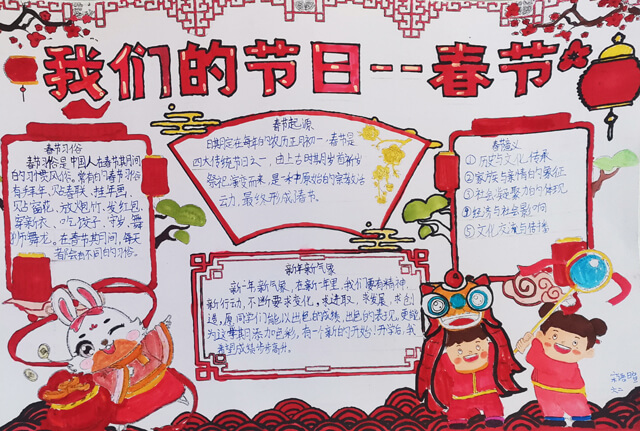 我们的节日--春节
春节习俗
春节习俗是中国人在春节期间
的习惯风俗。常有的春节习俗
有拜年、贴春联、挂年画、
贴窗花、放炮竹、发红包、
穿新衣、吃饺子、守岁、舞
狮舞龙。在春节期间，每天
都会有不同的习俗。
春节起源
日期定在每年的农历正月初一，春节是
四大传统节日之一，由上古时期岁首祈岁
祭祀演变而来，是一种原始的宗教活
动，最终形成春节。
春节意义
①历史与文化传承
②家族与亲情的象征
③社会凝聚力的体现
④经济与社会影响
⑤文化交流与传播
新年新气象
新一年新气象，在新一年里，我们要有精神，
新行动，不断要求变化，求进取，求发展，求创
造，愿同学们能以出色的成绩，出色的表现，更能
为这学期添加色彩，有一个新的开始！开学后，我
希望成绩步步高升。